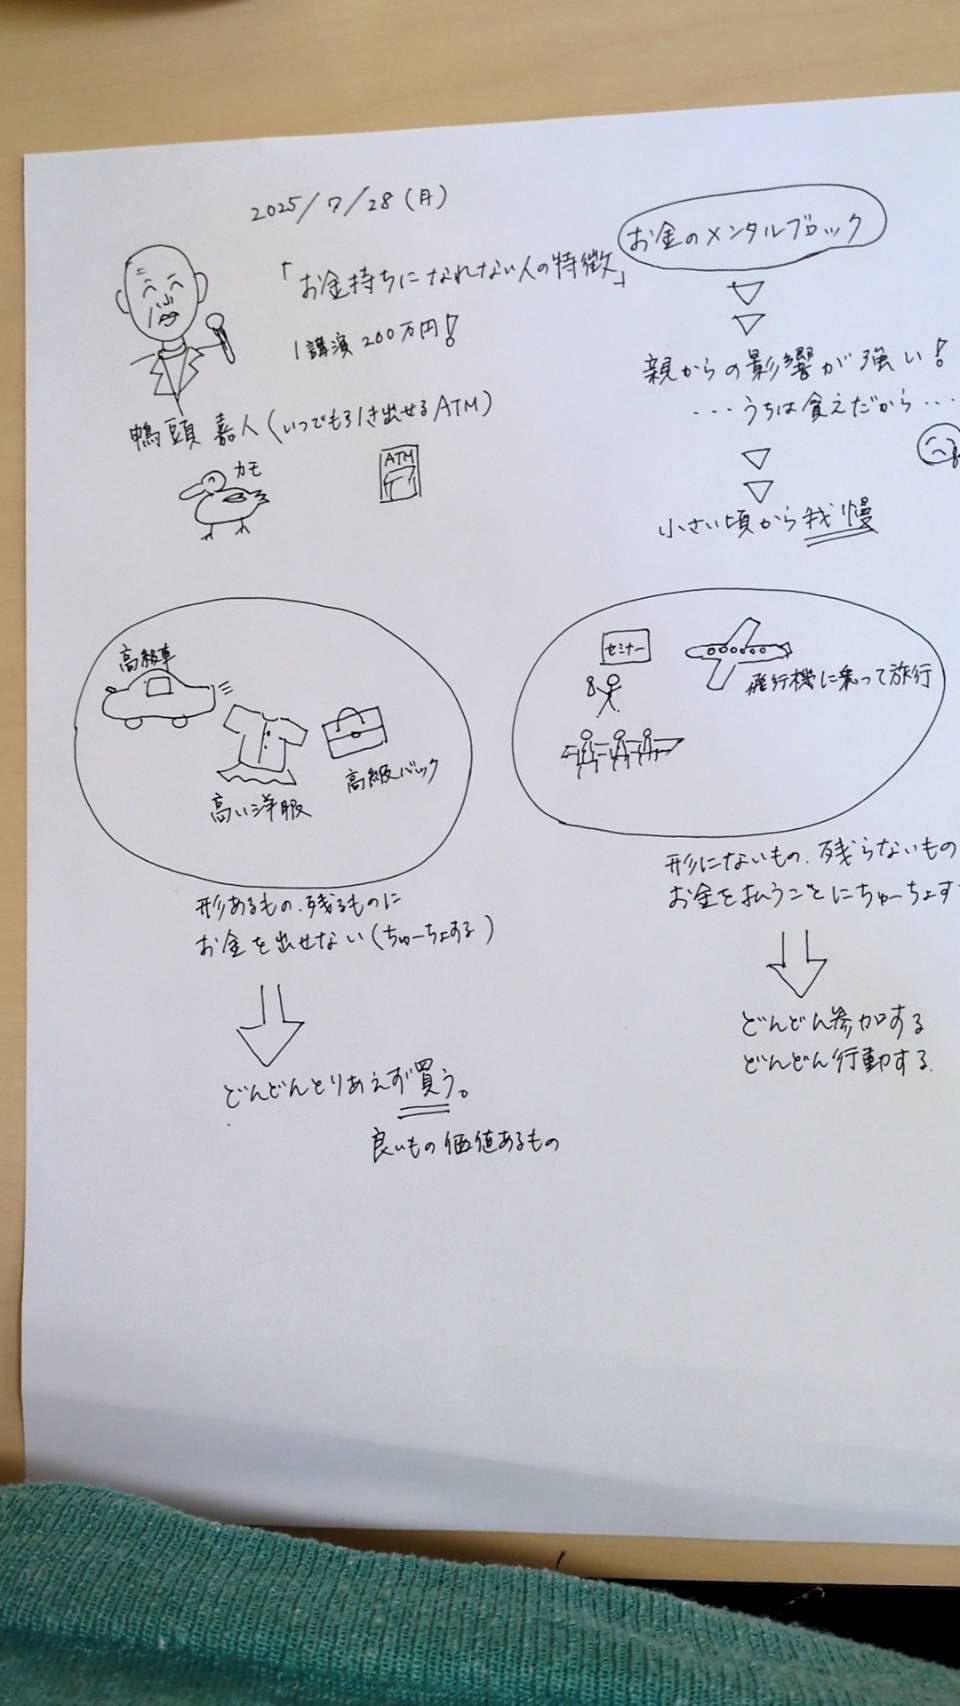 2025/7/28(月)
「お金持ちになれない人の特徴」
1講演200万円!
鴨頭 嘉人(いつでも引き出せるATM)
カモ
ATM
お金のメンタルブロック
親からの影響が強い!
・・・うちは貧えだから・・・
小さい頃から我慢
高級車
高い洋服
高級バック
形あるもの、残るものに
お金を出せない(ちゅーちょする)
どんどんとりあえず買う。
良いもの価値あるもの
セミナー
飛行機に乗って旅行
形にないもの、残らないもの
お金を払うことにちゅーちょす
どんどん参加する
どんどん行動する.